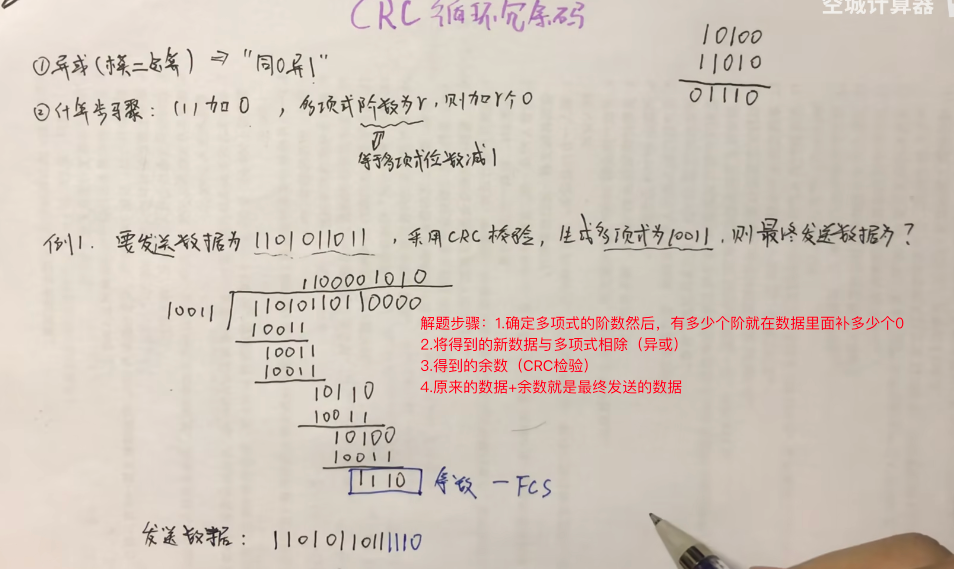 CRC 循环冗余码
空城计算器
①异或(模二运算) ⇒ "同0异1"
10100
11010
01110
②计算步骤: (1) 加0 , 多项式阶数为r, 则加r个0
等于多项式位数减1
例1. 要发送数据为 1101011011 , 采用CRC校验, 生成多项式为10011, 则最终发送数据为?
1100001010
10011
11010110110000
10011
10011
10011
10110
10011
10100
10011
1110 余数 — FCS
解题步骤：1.确定多项式的阶数然后，有多少个阶就在数据里面补多少个0
2.将得到的新数据与多项式相除（异或）
3.得到的余数（CRC检验）
4.原来的数据+余数就是最终发送的数据
发送数据: 11010110111110